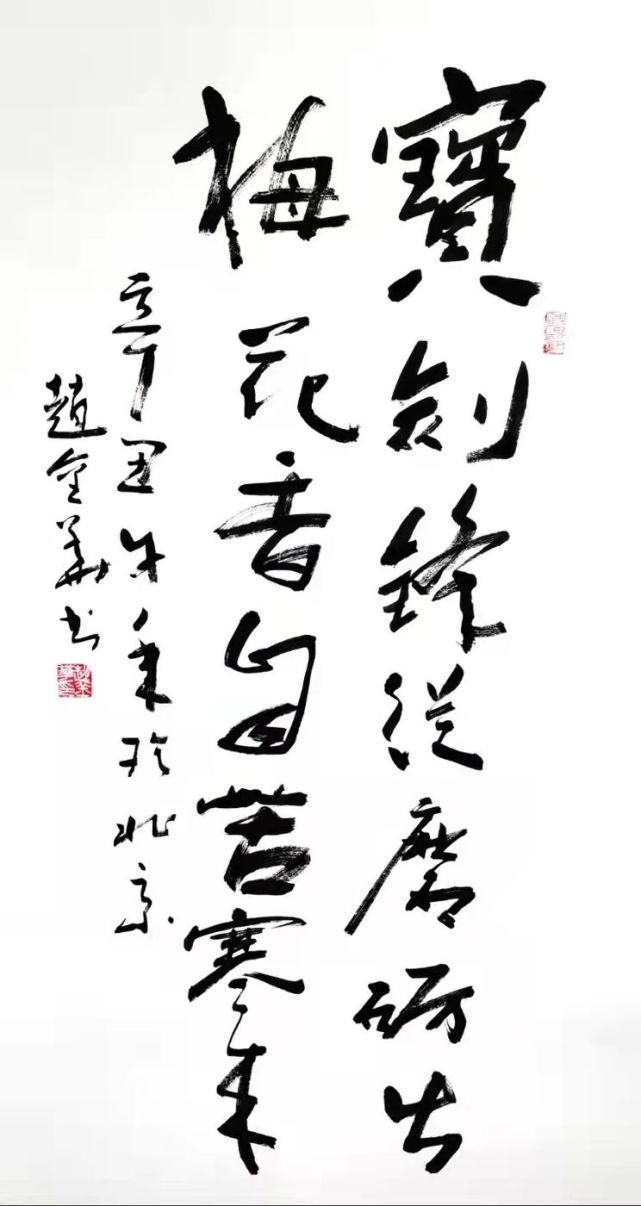 寶劍鋒從磨砺出
梅花香自苦寒来
辛丑牛年於北京
趙金華书